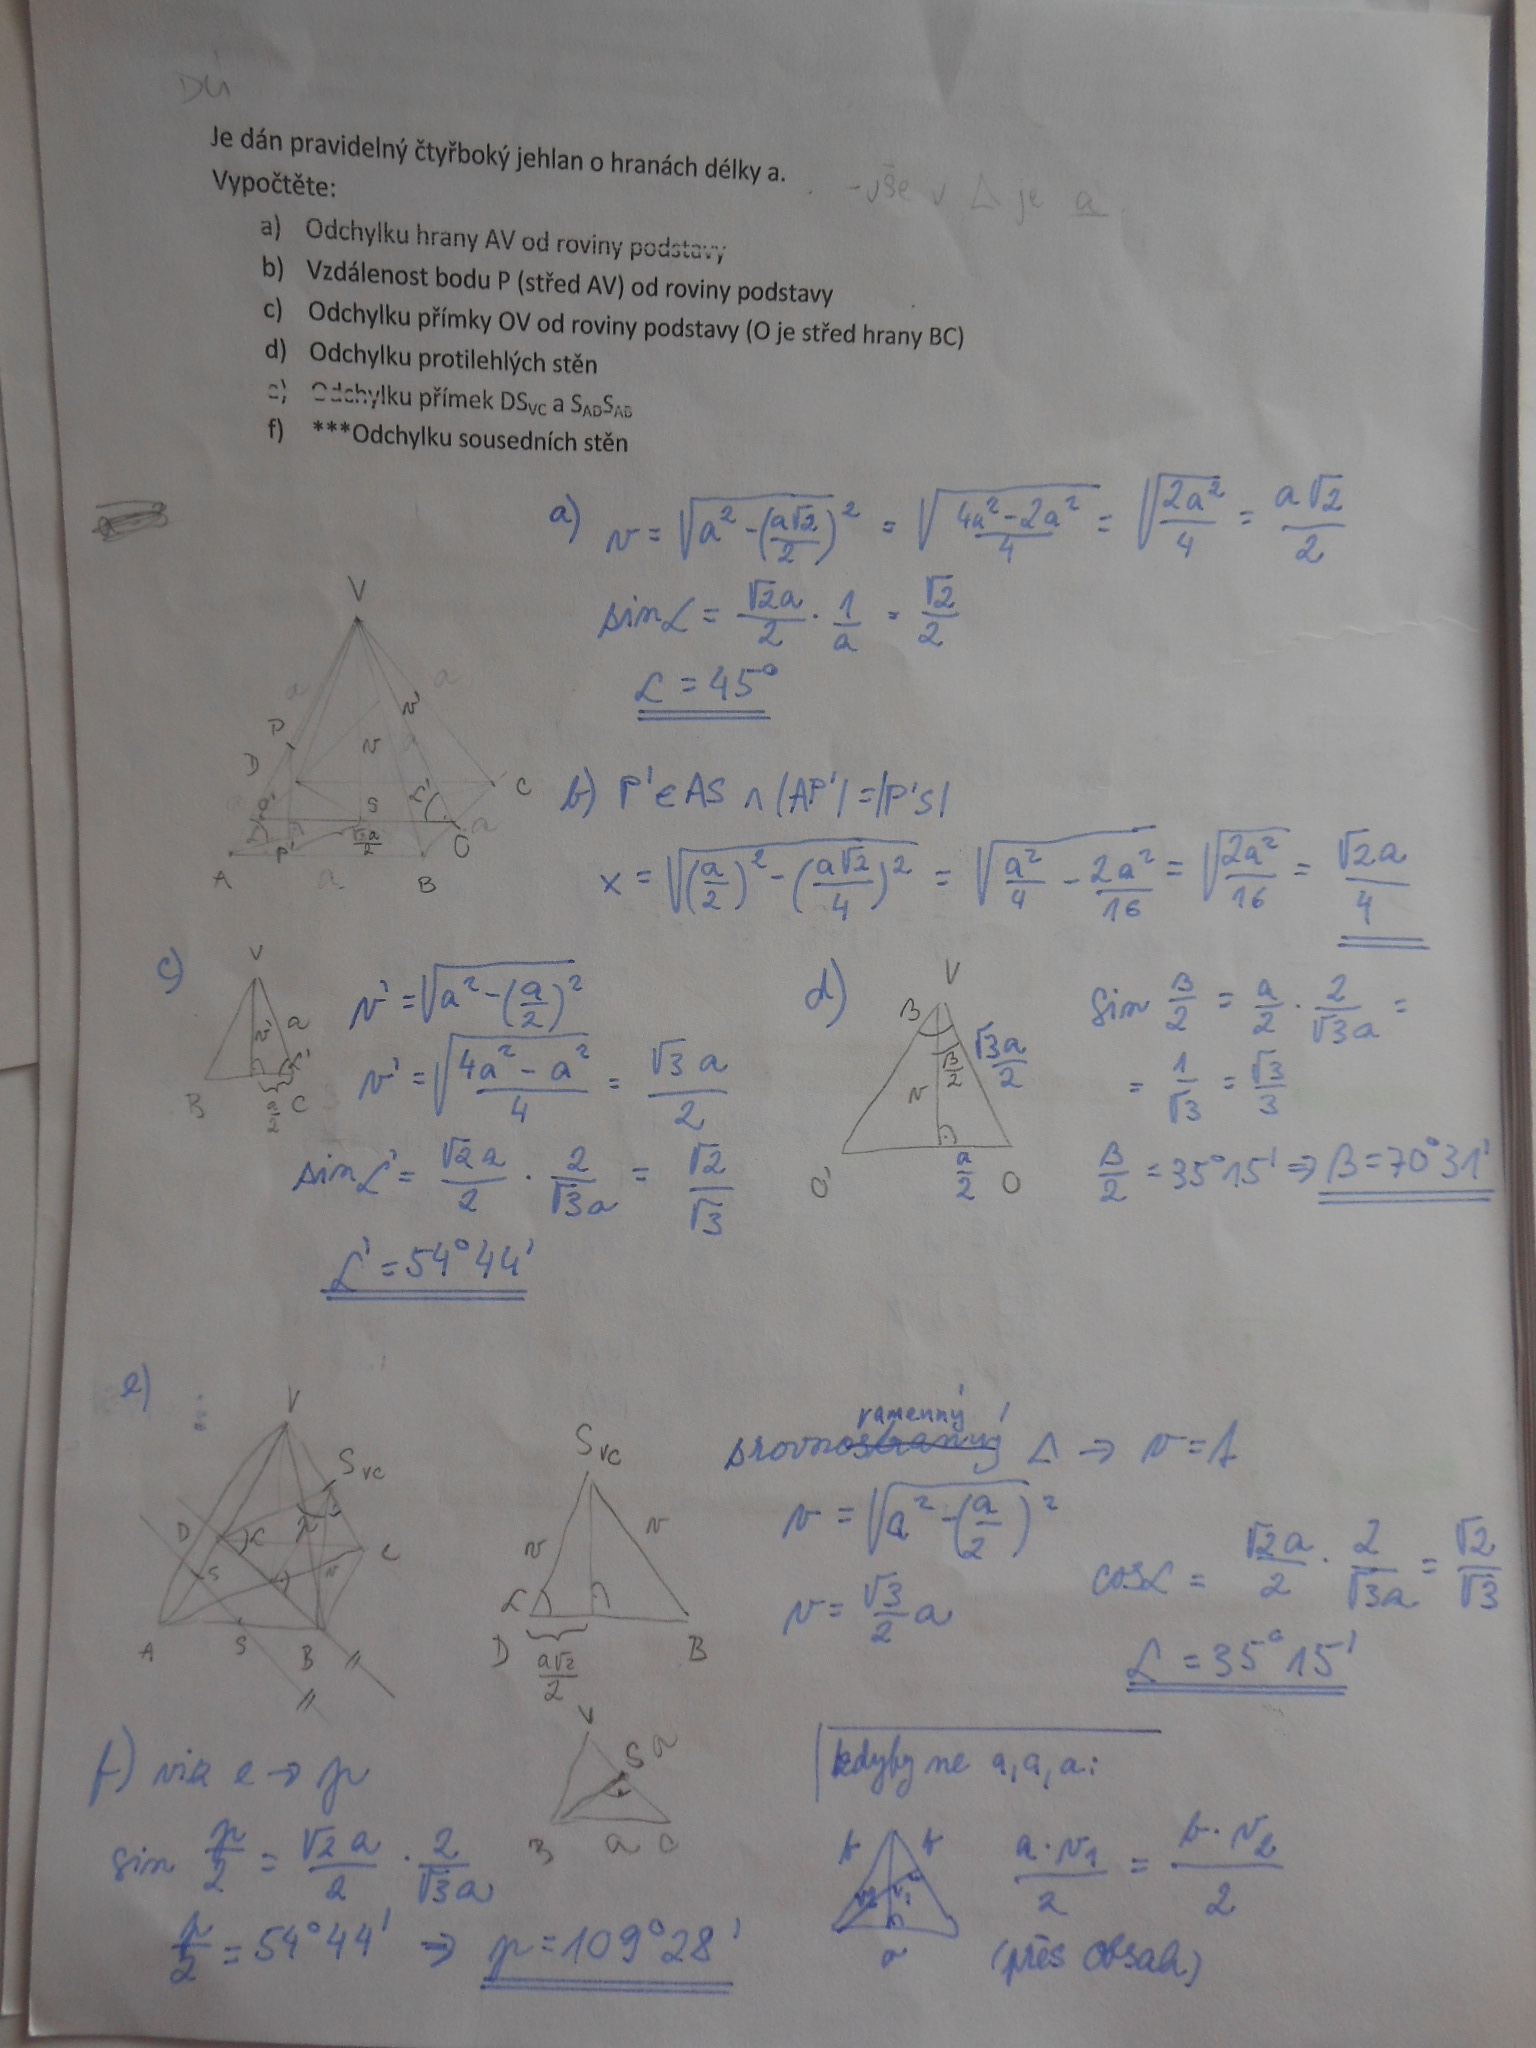 DÚ
Je dán pravidelný čtyřboký jehlan o hranách délky a.
- vše v △ je a
Vypočtěte:
a) Odchylku hrany AV od roviny podstavy
b) Vzdálenost bodu P (střed AV) od roviny podstavy
c) Odchylku přímky OV od roviny podstavy (O je střed hrany BC)
d) Odchylku protilehlých stěn
e) Odchylku přímek DS_VC a S_AD S_AB
f) ***Odchylku sousedních stěn
a) v = √(a² - (a√2/2)²) = √((4a² - 2a²)/4) = √(2a²/4) = a√2/2
sin α = √2a/2 · 1/a = √2/2
α = 45°
V
a a
P v v'
D C
O' S α'
α P' √2a/2 O a
A a B
b) P' ∈ AS ∧ |AP'| = |P'S|
x = √((a/2)² - (a√2/4)²) = √(a²/4 - 2a²/16) = √(2a²/16) = √2a/4
c)
V
v' a
α'
B a/2 C
v' = √(a² - (a/2)²)
v' = √((4a² - a²)/4) = √3a/2
sin α' = √2a/2 · 2/√3a = √2/√3
α' = 54°44'
d)
V
β
β/2 √3a/2
v
O' a/2 O
sin β/2 = a/2 · 2/√3a =
= 1/√3 = √3/3
β/2 = 35°15' ⇒ β = 70°31'
e)
V
S_VC
D α C
S v
A S B
//
//
S_VC
v v
α
D a√2/2 B
ramenný
srovnostranný △ → v = t
v = √(a² - (a/2)²)
v = √3/2 a
cos α = √2a/2 · 2/√3a = √2/√3
α = 35°15'
f) via e → μ
V
S a
B a C
sin μ/2 = √2a/2 · 2/√3a
μ/2 = 54°44' ⇒ μ = 109°28'
kdyby ne a, a, a:
v₂ v₁
a
a · v₁/2 = b · v₂/2
(přes obsah)